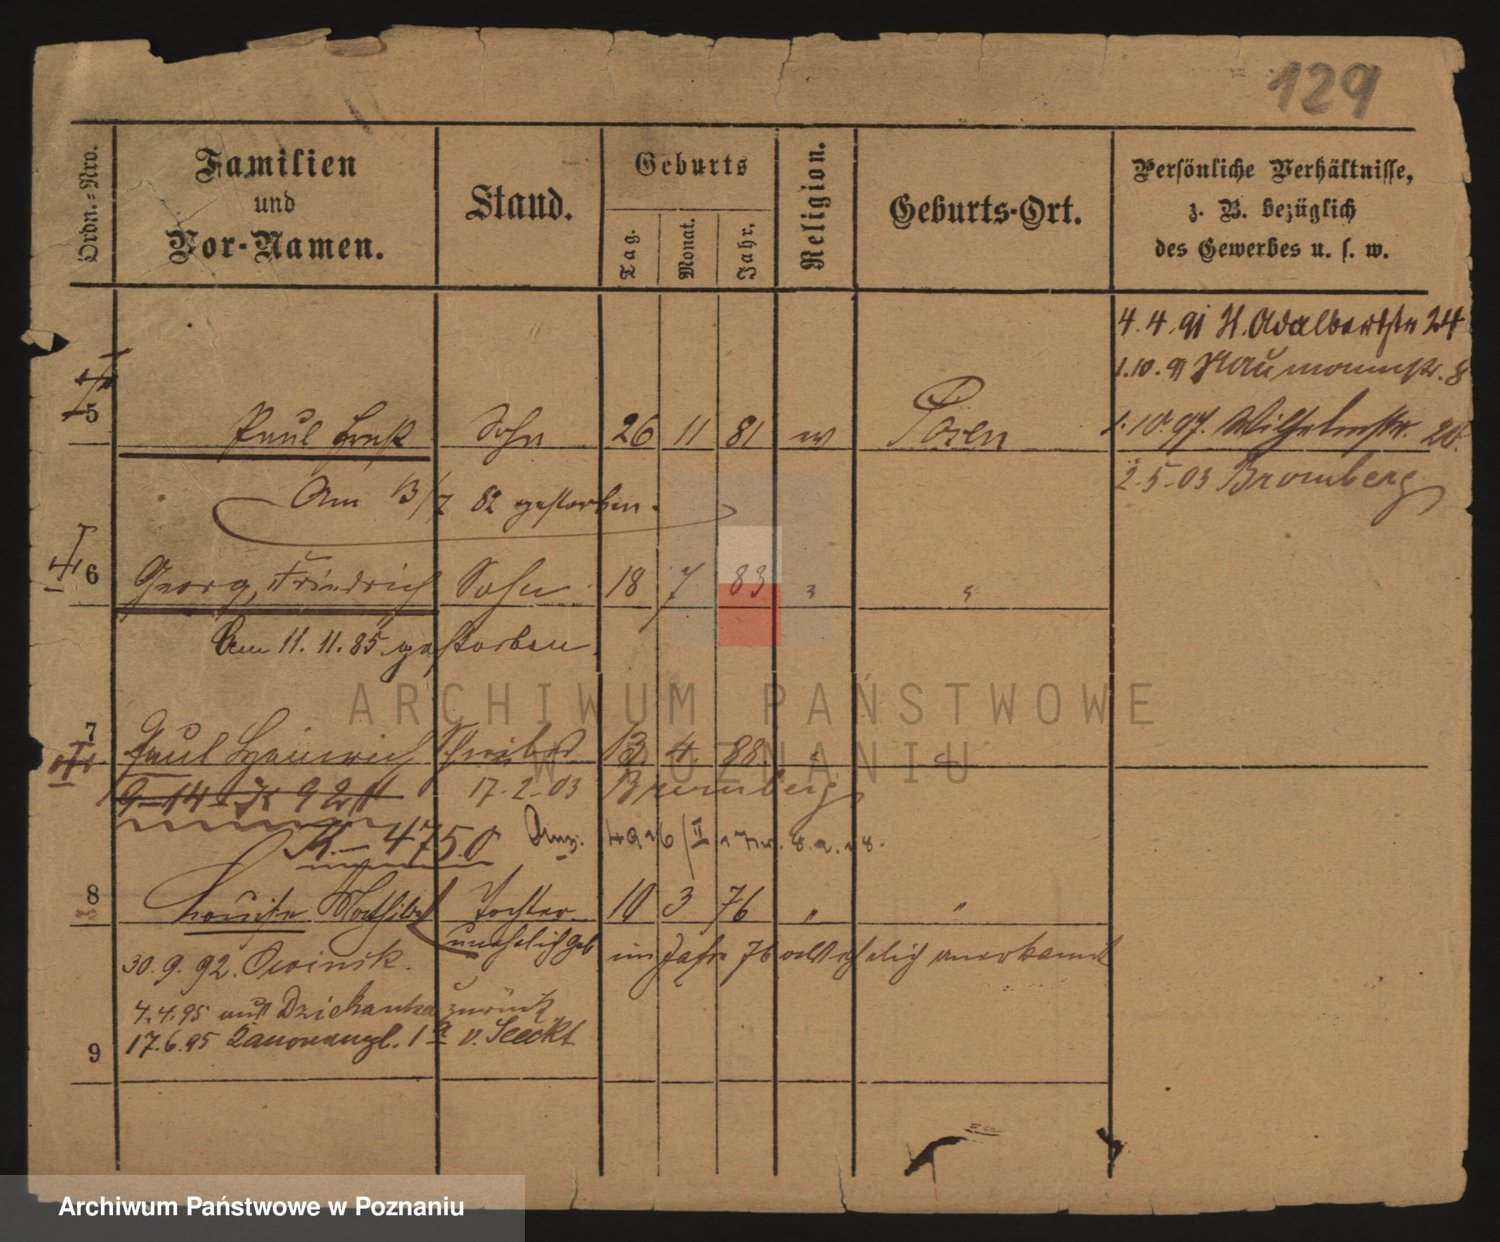 129
Ordn.-Nro.
Familien
und
Vor-Namen.
Stand.
Geburts
Tag.
Monat.
Jahr.
Religion.
Geburts-Ort.
Persönliche Verhältnisse,
z. B. bezüglich
des Gewerbes u. s. w.
4. 4. 91 H. Adalbertstr 24
1. 10. 91 Naumannstr. 8
5 Paul Ernst Sohn 26 11 81 ev Posen
1. 10 97. Wilhelmstr. 20.
2. 5. 03 Bromberg
Am 13/7 82 gestorben.
6 Georg, Friedrich Sohn 18 7 83 " "
Am 11. 11. 85. gestorben.
7 Paul Heinrich 13 4 88 " "
17. 2. 03 Bromberg
K. - 4750
8 Louise Mathilde Tochter 10 3 76 " "
unehelich geb im Jahre 76 als ehelich anerkannt
30. 9. 92. Owinsk.
4. 4. 95 aus Dziekanka zurück
9 17. 6. 95 v. Seeckt
ARCHIWUM PAŃSTWOWE
W POZNANIU
Archiwum Państwowe w Poznaniu